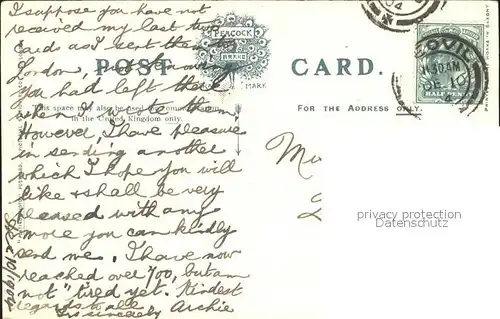 I suppose you have not
received my last two
cards as I sent them to
London, and
you had left there
when I wrote them.
However I have pleasure
in sending another
which I hope you will
like & shall be very
pleased with any
more you can kindly
send me. I have now
reached over 700, but am
not "tired yet. Kindest
regards to all
Yrs sincerely Archie
Dec 10/1904
POST CARD.
PEACOCK
BRAND
MARK
This space may also be used for communication
in the United Kingdom only.
FOR THE ADDRESS ONLY.
YEOVIL
10.30AM
DE 10
04
HALFPENNY
privacy protection
Datenschutz